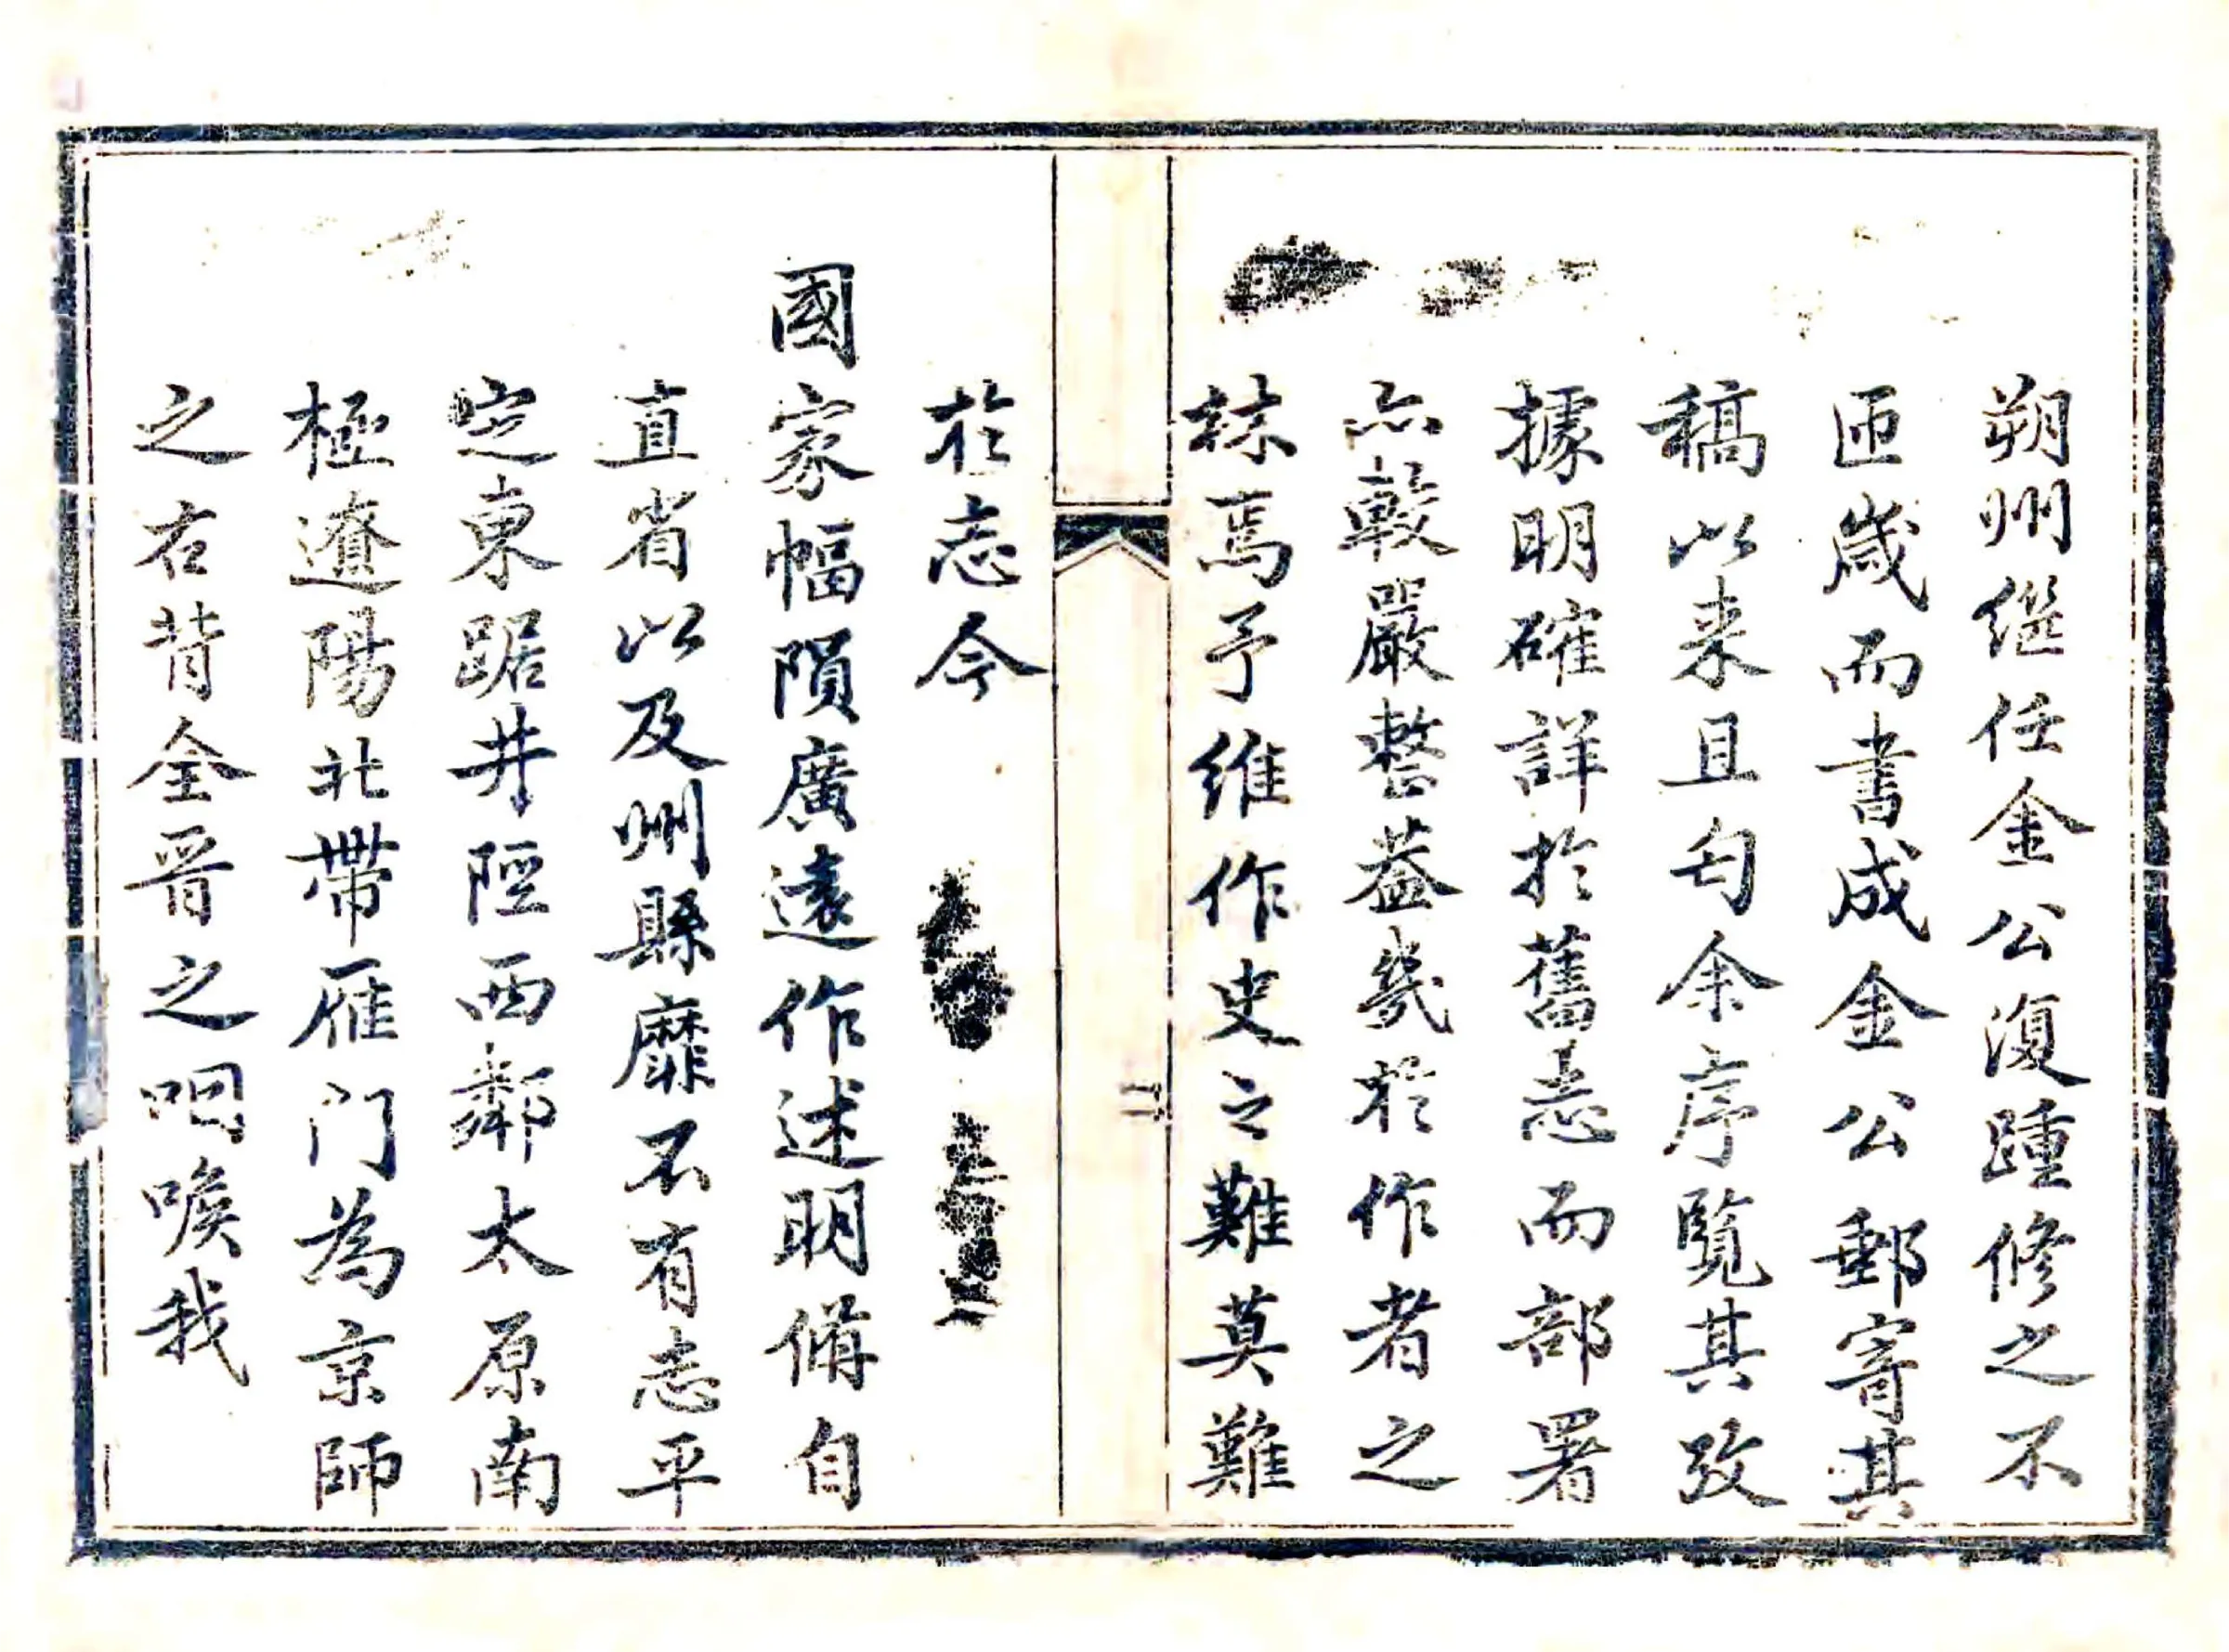 朔州繼任金公復踵修之不
匝嵗而書成金公郵寄其
稿以来且匄余序覽其攷
據明確詳於舊志而部署
亦較嚴整葢幾於作者之
林焉予維作史之難莫難
二
於志今
國家幅隕廣遠作述明備自
直省以及州縣靡不有志平
定東踞井陘西鄰太原南
極遼陽北帶雁门為京師
之右背全晋之咽喉我